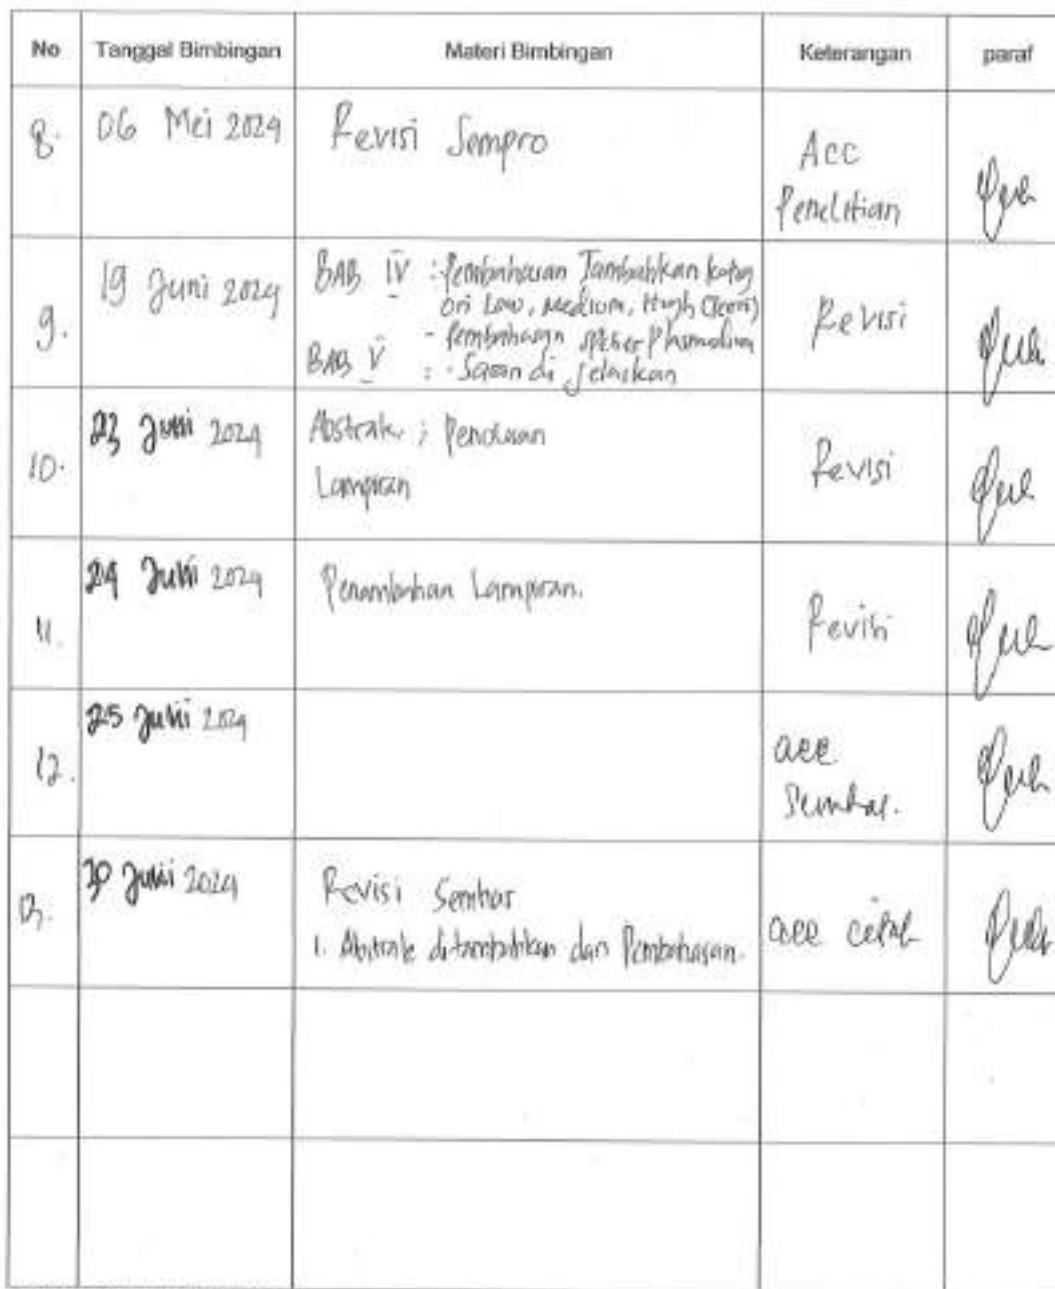 No Tanggal Bimbingan Materi Bimbingan Keterangan paraf
8. 06 Mei 2024 Revisi Sempro Acc
Penelitian
9. 19 Juni 2024 BAB IV : Pembahasan Tambahkan kateg
ori Low, Medium, High
- Pembahasan Plasmodium
BAB V : - Saran di jelaskan
Revisi
10. 23 2024 Abstrak ;
Lampiran
Revisi
11. 24 2024 Penambahan Lampiran.
Revisi
12. 25 2024 acc
Semhas.
13. 2024 Revisi Semhas
1. Abstrak ditambahkan dan Pembahasan.
acc cetak